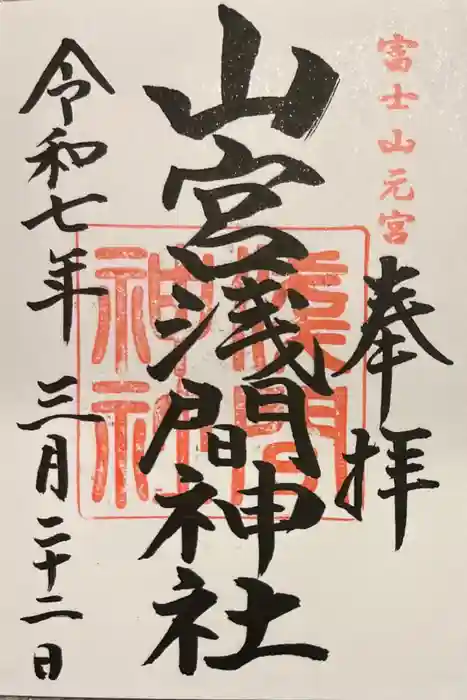 富士山元宮
奉拝
山宮浅間神社
淺間神社
令和七年三月二十二日